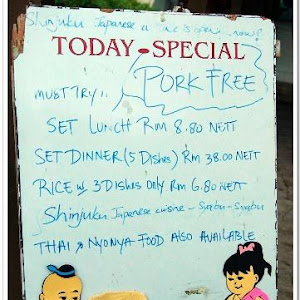 Shinjuku Japanese is open now!
TODAY-SPECIAL
PORK FREE
MUST TRY!!
SET LUNCH RM 8.80 NETT
SET DINNER (5 DISHES) RM 38.00 NETT
RICE W 3 DISHES ONLY RM 6.80 NETT
Shinjuku Japanese cuisine - Syabu-Syabu
THAI & NYONYA FOOD ALSO AVAILABLE